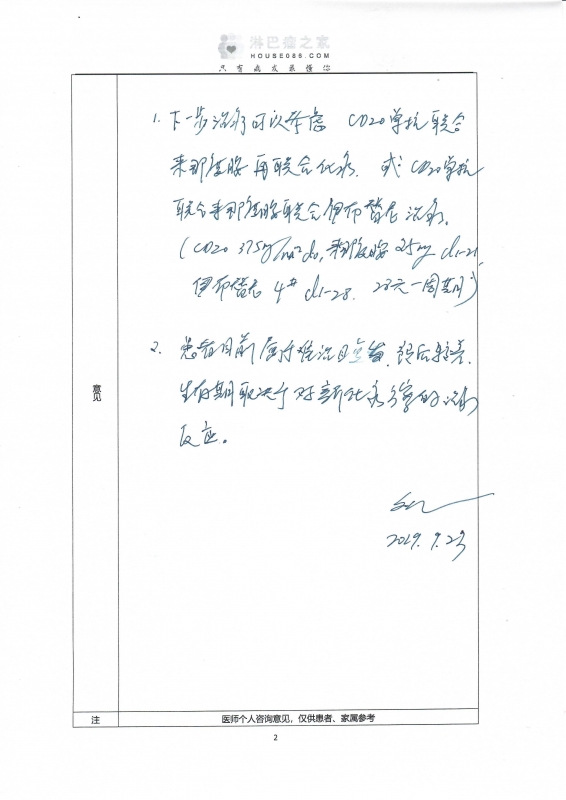 淋巴瘤之家
HOUSE086.COM
只有病友最懂你
1. 下一步治疗可以考虑 CD20单抗联合
来那度胺再联合化疗. 或 CD20单抗
联合来那度胺联合伊布替尼治疗.
(CD20 375mg/m² d0, 来那度胺 25mg d1-21,
伊布替尼 4# d1-28. 28天一周期)
2. 患者目前属于难治且, 预后较差.
生存期取决于对新化疗方案的治疗
反应。
2019. 9. 23
意见
注 医师个人咨询意见，仅供患者、家属参考
2